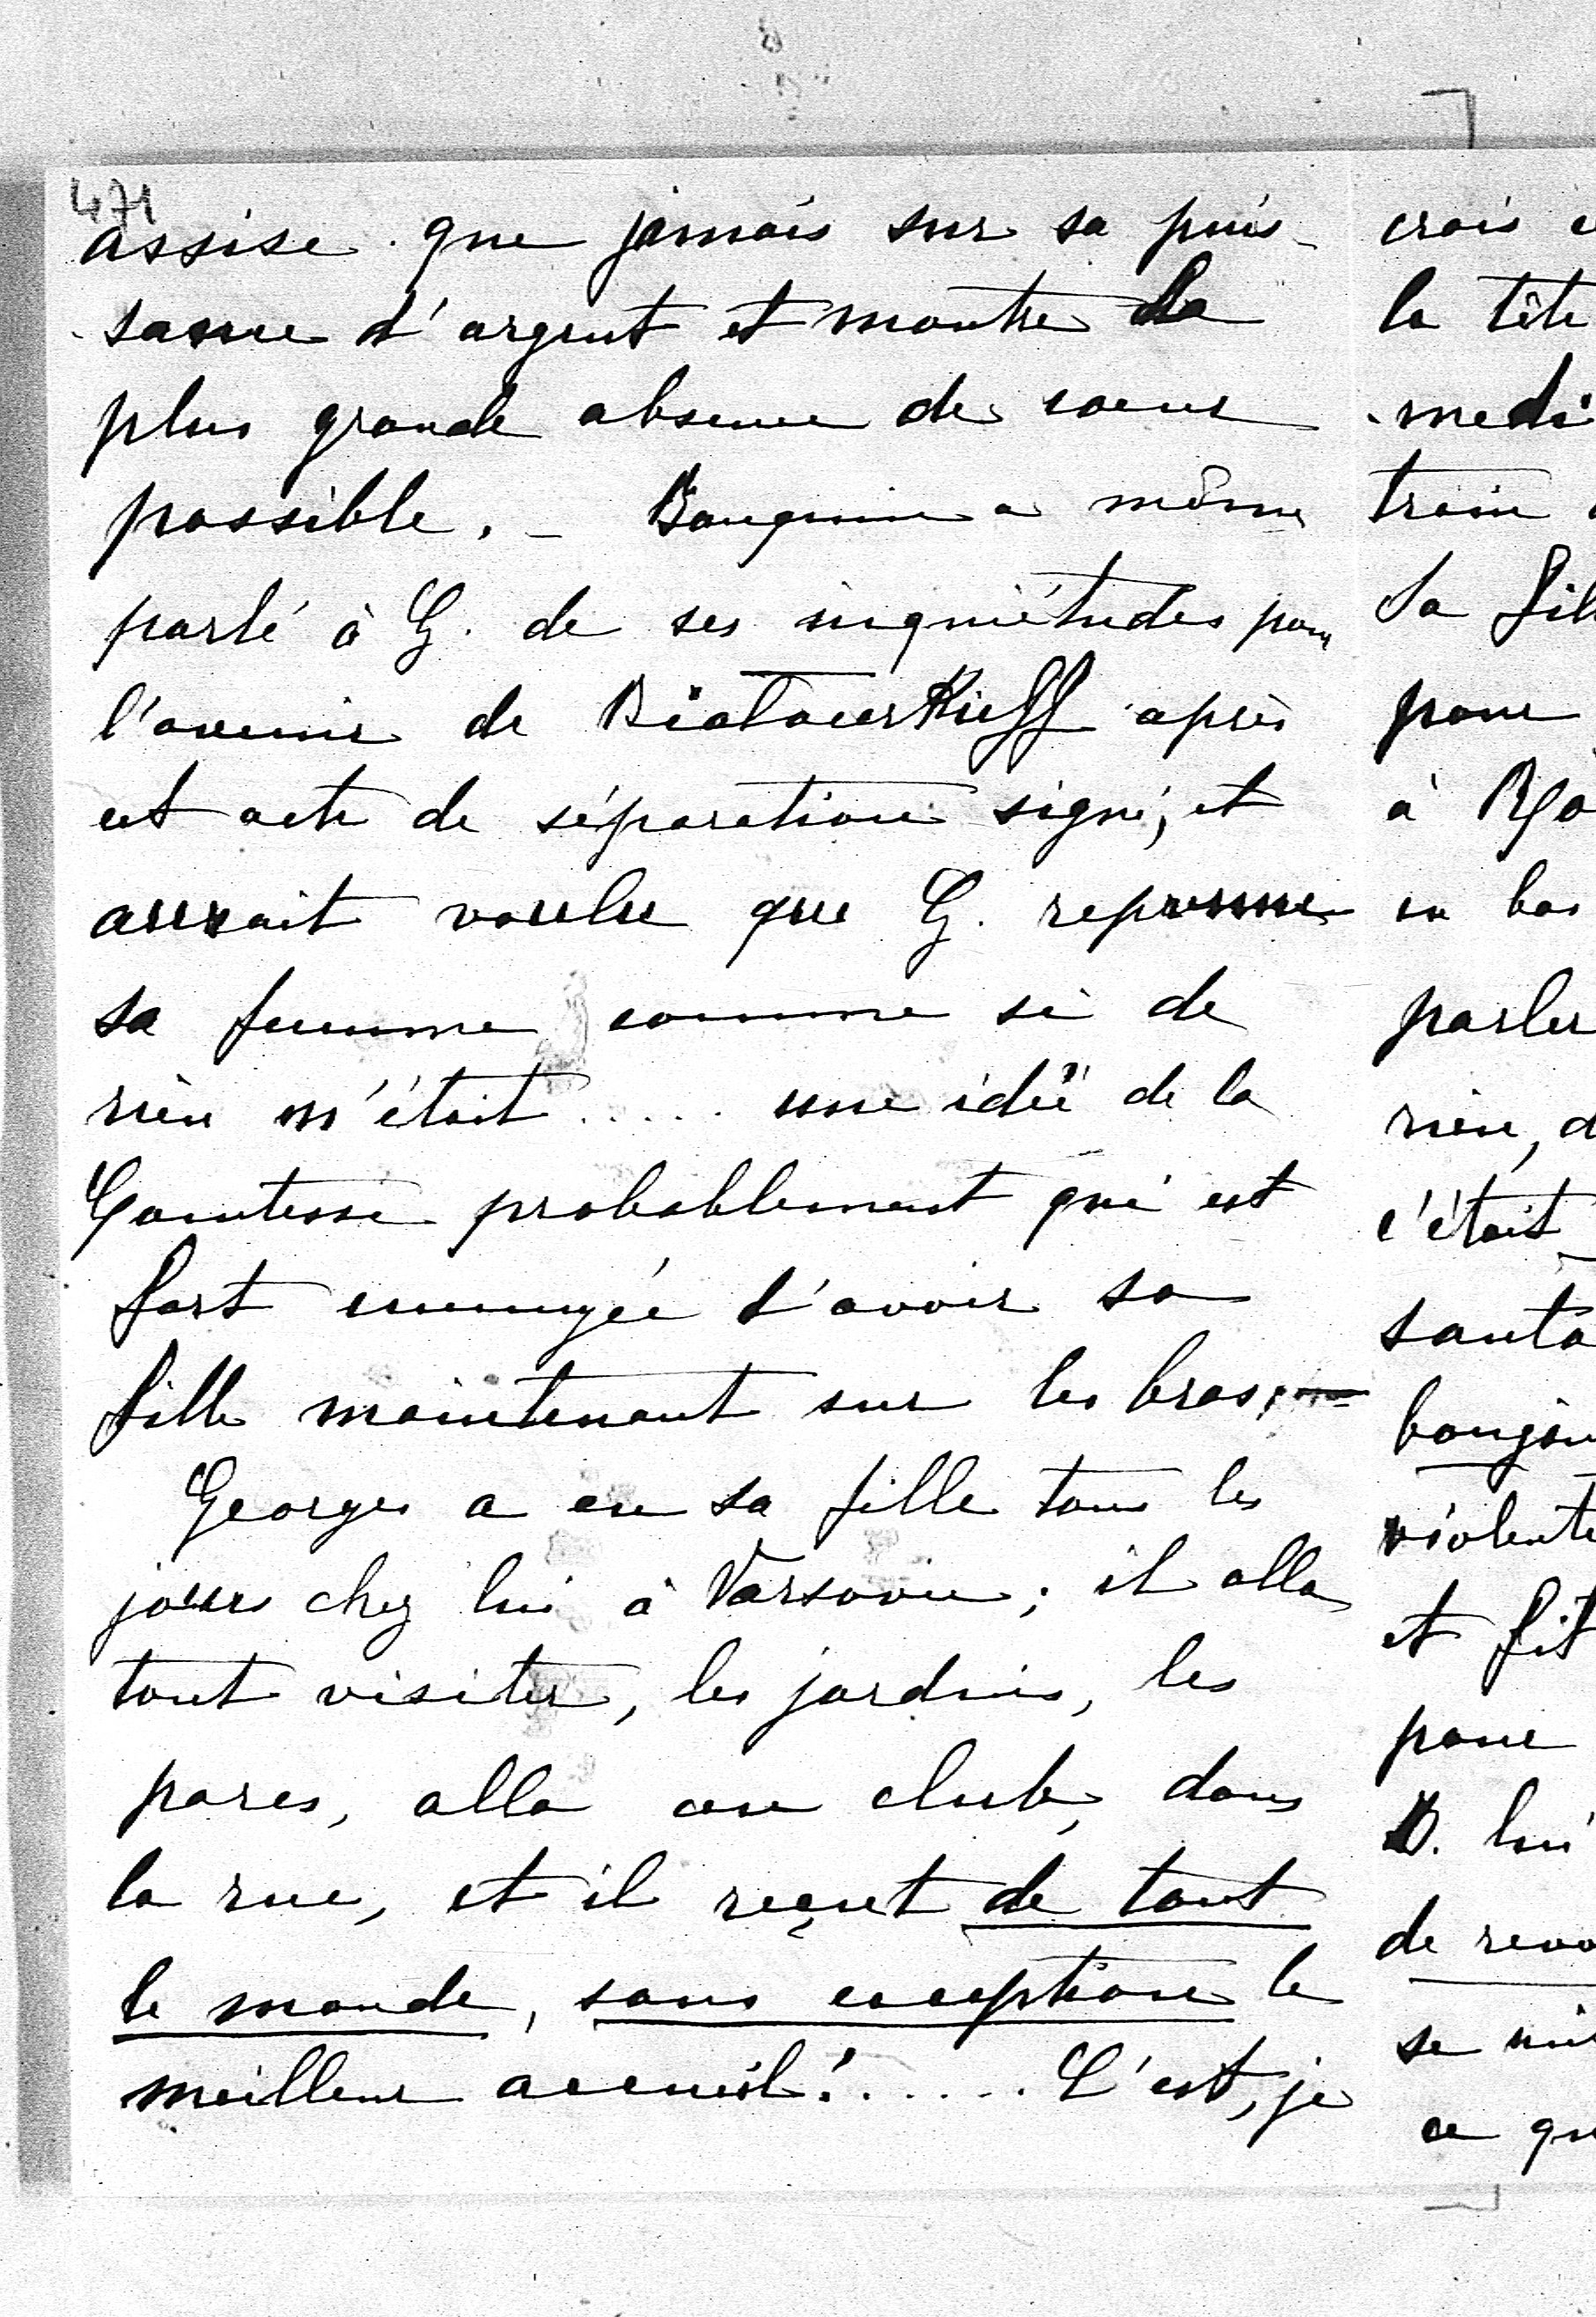 471
assise que jamais sur sa puis-
sance d'argent et montre la
plus grande absence de coeur
possible. – Bauquine a même
parlé à G. de ses inquiétudes pour
l'avenir de BiatocerKieff après
cet acte de séparation signé, et
aurait voulu que G. reprenne
sa femme comme si de
rien n'était ..... une idée de la
Comtesse probablement qui est
fort ennuyée d'avoir sa
fille maintenant sur les bras. —
Georges a eu sa fille tous les
jours chez lui à Varsovie ; il alla
tout visiter, les jardins, les
parcs, alla au club, dans
la rue, et il reçut de tout
le monde, sans exception le
meilleur accueil ! ...... C'est, je
crois
la tête
medi
train
Sa fil
pour
à
en bas
parler
rien, d
c'était
santa
bonjou
violente
et fit
pour
B. lui
de revo
se mi
ce qu